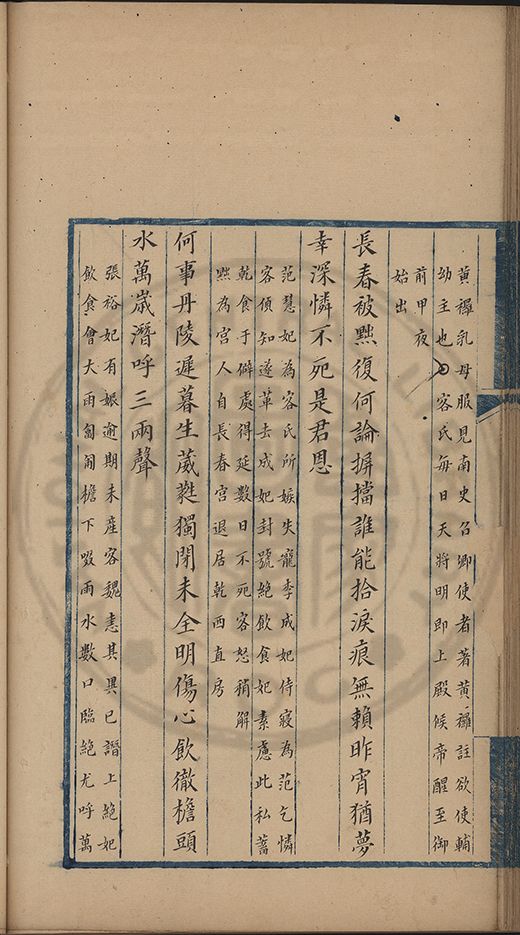 黃襬乳母服見南史呂卿使者著黃襬註欲使輔
幼主也 客氏每日天將明即上殿候帝醒至御
前甲夜
始出
長春被黜復何論摒擋誰能拾淚痕無賴昨宵猶夢
幸深憐不死是君恩
范慧妃為客氏所嫉失寵李成妃侍寢為范乞憐
客偵知遂革去成妃封號絕飲食妃素慮此私蓄
乾食于僻處得延數日不死客怒稍解
黜為宮人自長春宮退居乾西直房
何事丹陵遲暮生葳蕤獨閉未全明傷心飲徹檐頭
水萬歲潛呼三兩聲
張裕妃有娠逾期未產客魏恚其異己譖上絕妃
飲食會大雨匍匐檐下啜雨水數口臨絕尤呼萬